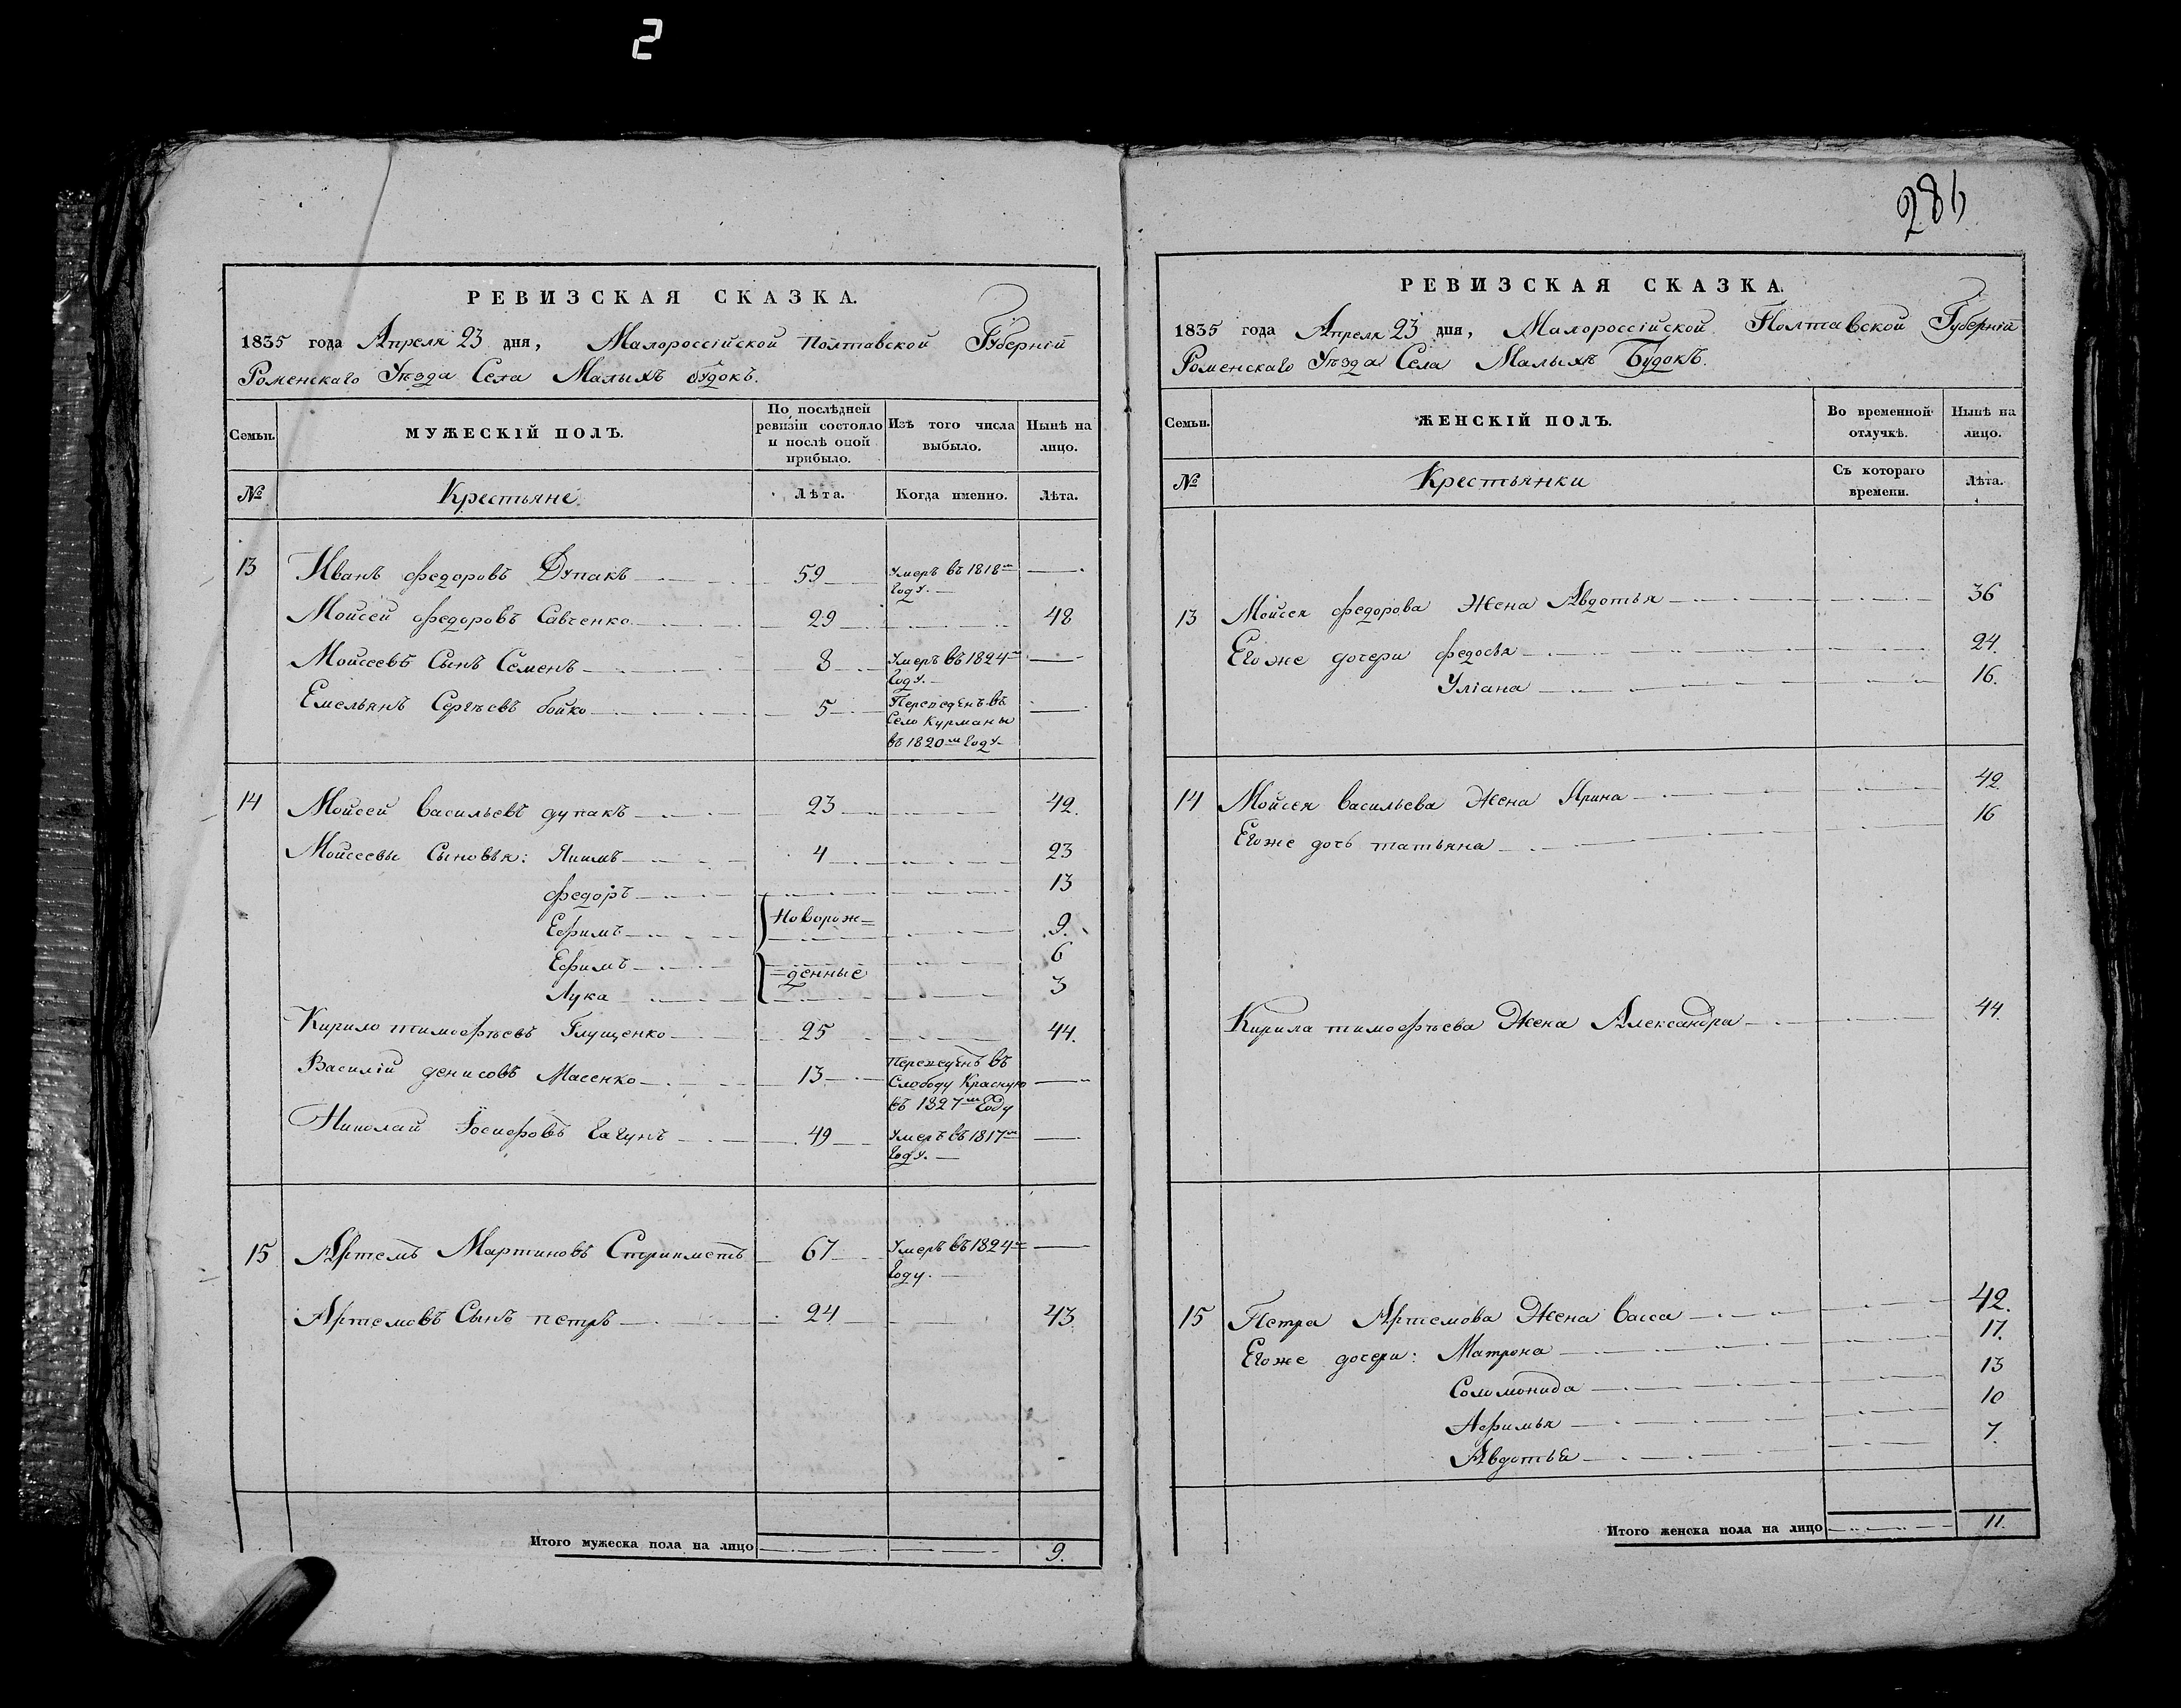 2
РЕВИЗСКАЯ СКАЗКА.
1835 года Апреля 23 дня, Малороссійской Полтавской Губерніи
Роменскаго Уѣзда Села Малыхъ будокъ.
Семьи.
МУЖЕСКІЙ ПОЛЪ.
По послѣдней ревизіи состояло и послѣ оной прибыло.
Изъ того числа выбыло.
Нынѣ на лицо.
№ Крестьяне Лѣта. Когда именно. Лѣта.
13 Иванъ федоровъ Дупакъ 59 Умеръ въ 1818м
году.
Моисей федоровъ Савченко 29 48
Моисеевъ Сынъ Семенъ 8 Умеръ въ 1824м
году.
Емельянъ Сергѣевъ бойко 5 Переведенъ въ
Село Курманы
въ 1820м году
14 Моисей васильевъ дупакъ 23 42.
Моисеевы Сыновья: Якимъ 4 23
федоръ 13
Ефимъ Новорож= 9.
Ефимъ =денные 6
Лука 3
Кирило тимофѣевъ Глущенко 25 44.
Василій денисовъ Масенко 13 Переведенъ въ
Слободу Красную
въ 1827м Году
Николай Іосифовъ 49 Умеръ въ 1817м
году.
15 Артемъ Мартиновъ 67 Умеръ въ 1824м
году.
Артемовъ Сынъ петръ 24 43
Итого мужеска пола на лицо 9.
286
РЕВИЗСКАЯ СКАЗКА.
1835 года Апреля 23 дня, Малороссійской Полтавской Губерніи
Роменскаго Уѣзда Села Малыхъ Будокъ.
Семьи.
ЖЕНСКІЙ ПОЛЪ.
Во временной отлучкѣ.
Нынѣ на лицо.
№ Крестьянки Съ котораго времени. Лѣта.
13 Моисея федорова Жена Авдотья 36
Егоже дочери федосья 24.
Уліана 16.
14 Моисея васильева Жена Ирина 42
Егоже дочь татьяна 16
Кирила тимофѣева Жена Александра 44.
15 Петра Артемова Жена васса 42.
Егоже дочери: Матрона 17.
Соломонида 13
Афимья 10
Авдотья 7.
Итого женска пола на лицо 11.